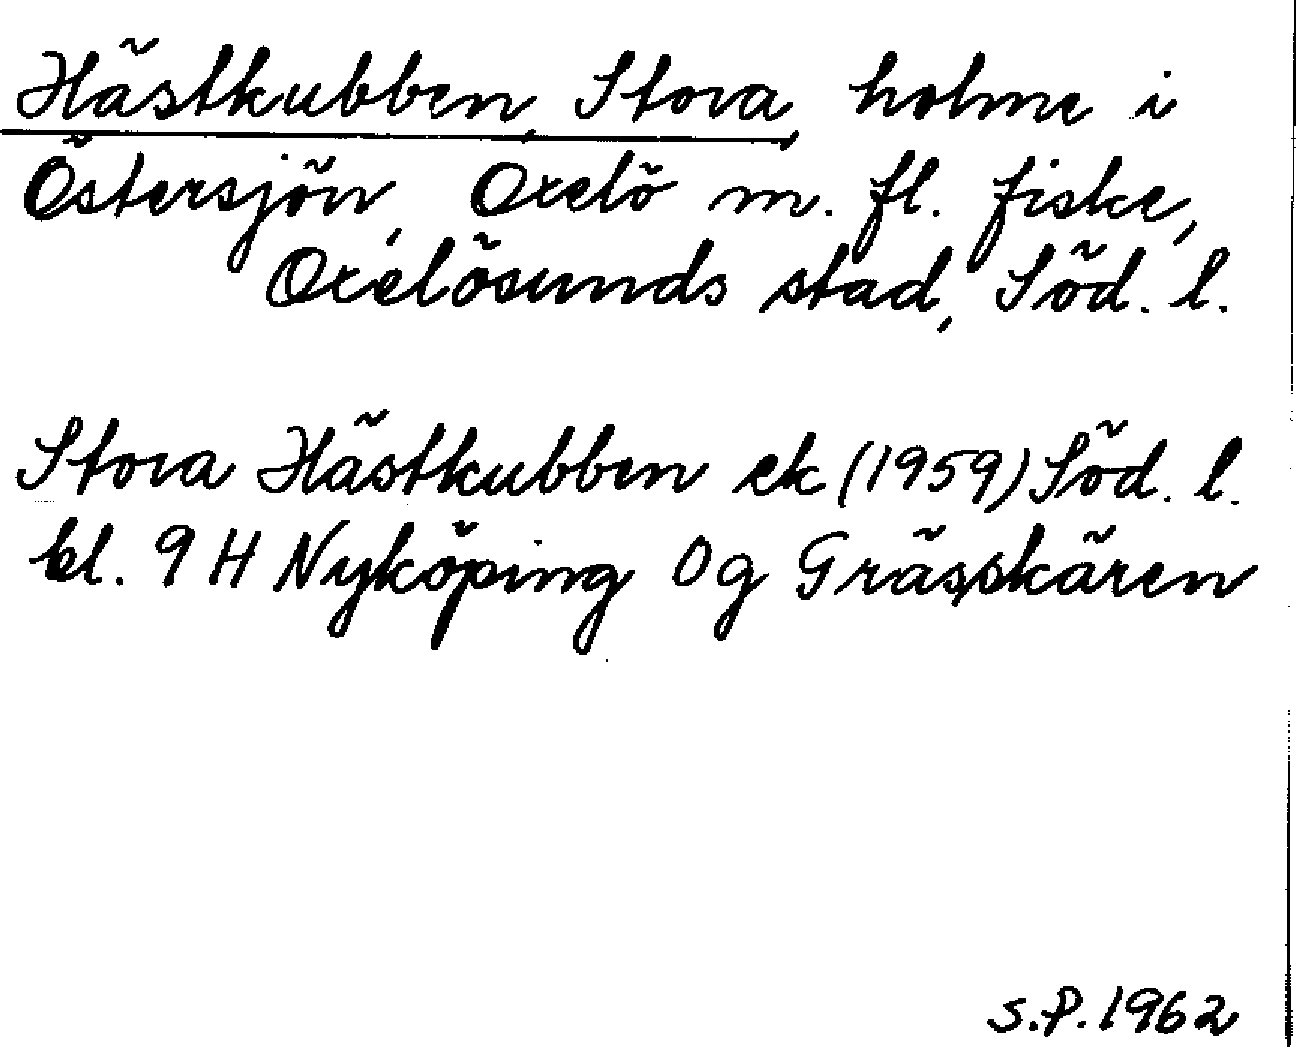 Hästkubben, Stora, holme i
Östersjön, Oxelö m. fl. fiske,
Oxelösunds stad, Söd. l.
Stora Hästkubben ek (1959) Söd. l.
bl. 9 H Nyköping 0 g Grässkären
S.P. 1962